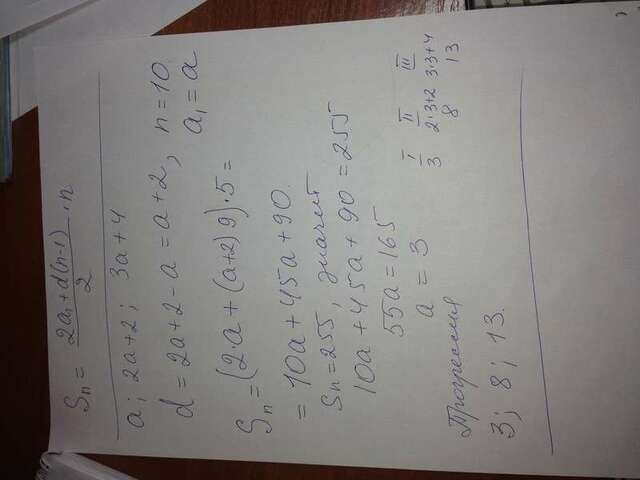 Sn = 2a₁+d(n-1)/2 · n
a; 2a+2; 3a+4
d = 2a+2-a = a+2, n=10
a₁=a
Sn=(2·a+(a+2)9)·5=
= 10a+45a+90.
Sn=255, значит
10a+45a+90=255
55a=165
a = 3
I II III
3 2·3+2 3·3+4
8 13
Прогрессия
3; 8; 13.